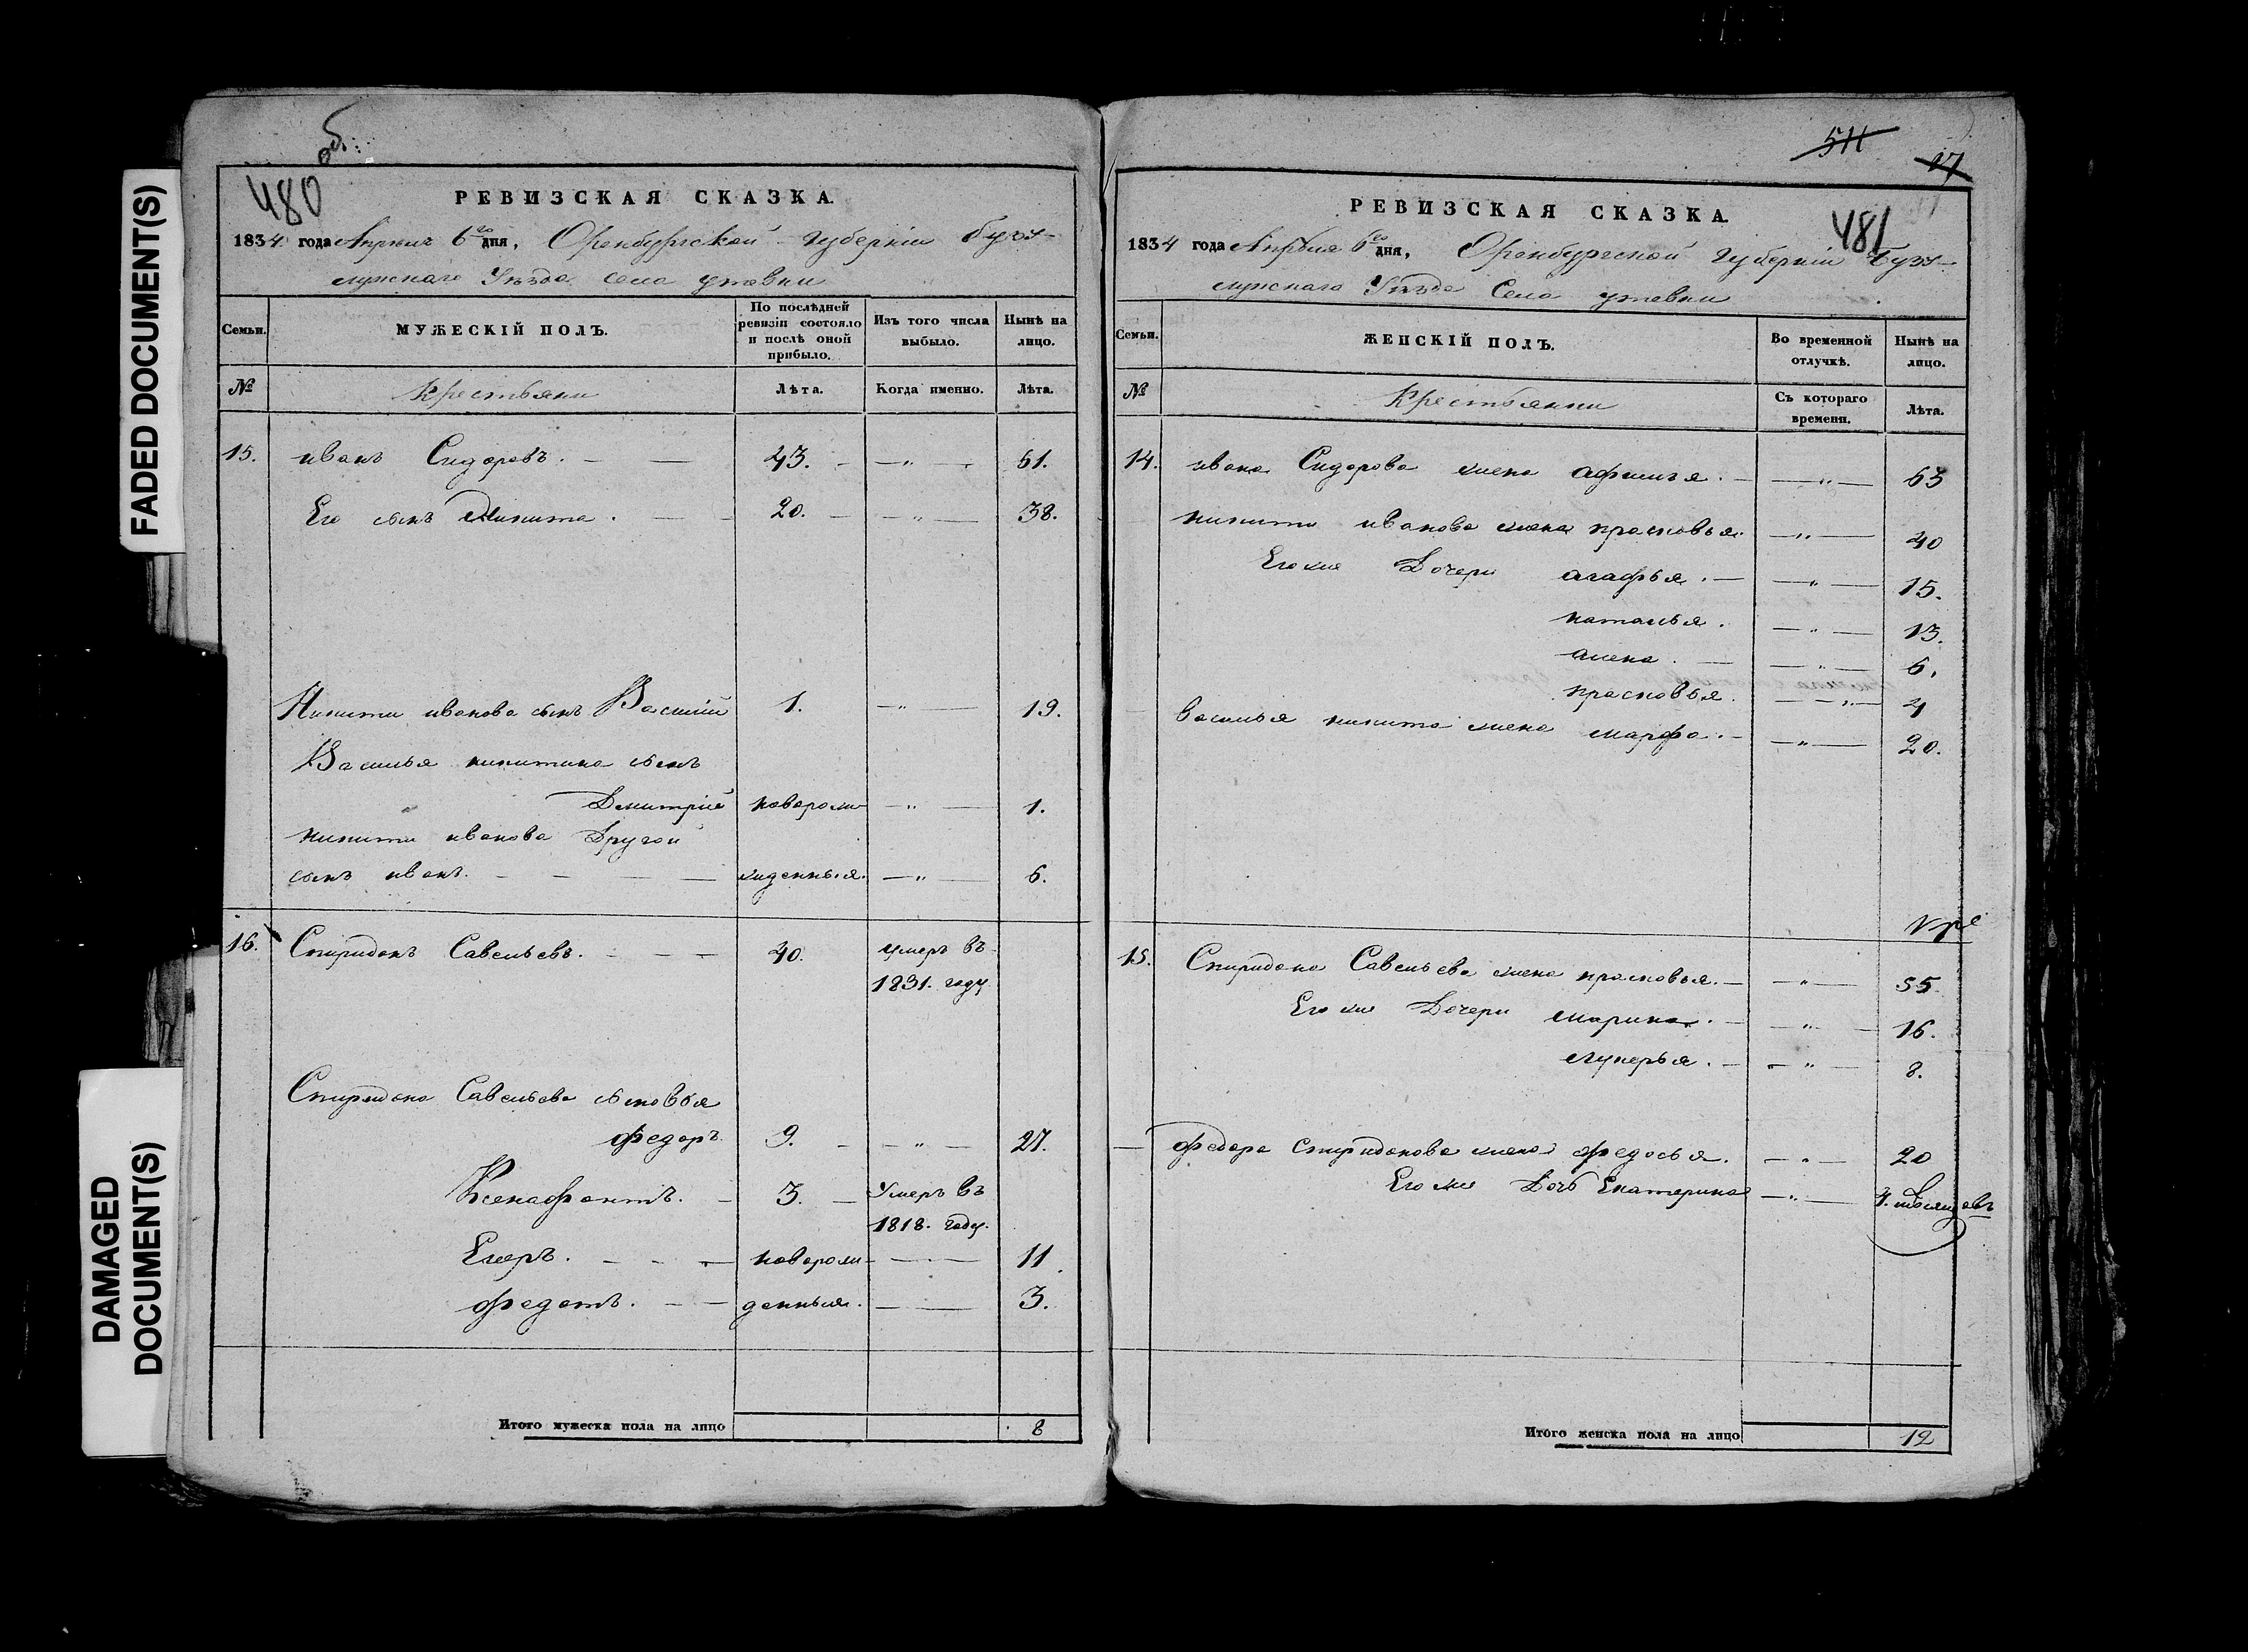 FADED DOCUMENT(S)
DAMAGED
DOCUMENT(S)
об.
480
РЕВИЗСКАЯ СКАЗКА.
1834 года Апреля 6го дня, Оренбургской губернии Бузу-
лукскаго Уезда села утевки
Семьи. МУЖЕСКІЙ ПОЛЪ. По послѣдней ревизіи состояло и послѣ оной прибыло. Изъ того числа выбыло. Нынѣ на лицо.
№ Крестьяни Лѣта. Когда именно. Лѣта.
15. иванъ Сидоровъ. 43. —"— 61.
Его сынъ Микита. 20. —"— 38.
Никиты иванова сынъ Василий 1. —"— 19.
Василья никитина сынъ
Дмитрий новорож- —"— 1.
никиты иванова Другой
сынъ иванъ. жденныя. —"— 6.
16. Спиридонъ Савельевъ. 40. умеръ въ
1831. году
Спиридона Савельева сыновья
федоръ 9. —"— 27.
Ксенафонтъ. 3. Умеръ въ
1818. году.
Егоръ. новорож- — 11.
федотъ. денныя. — 3.
Итого мужеска пола на лицо 8
511
17
481
РЕВИЗСКАЯ СКАЗКА.
1834 года Апреля 6го дня, Оренбургской губерний Бузу-
лукскаго Уезда Села утевки
Семьи. ЖЕНСКІЙ ПОЛЪ. Во временной отлучкѣ. Нынѣ на лицо.
№ Крестьянки Съ котораго времени. Лѣта.
14. ивана Сидорова жена афимья. —"— 63
никиты иванова жена прасковья. —"— 40
Его же Дочери агафья. —"— 15.
наталья. —"— 13.
алена. —"— 6.
прасковья. —"— 4
василья никита жена марфа. —"— 20.
15. Спиридона Савельева жена прасковья. —"— 55.
Его же Дочери марина. —"— 16.
лукерья. —"— 8.
федора спиридонова жена федосья. —"— 20
Его же Дочь Екатерина —"— 4. месяцовъ
Итого женска пола на лицо 12